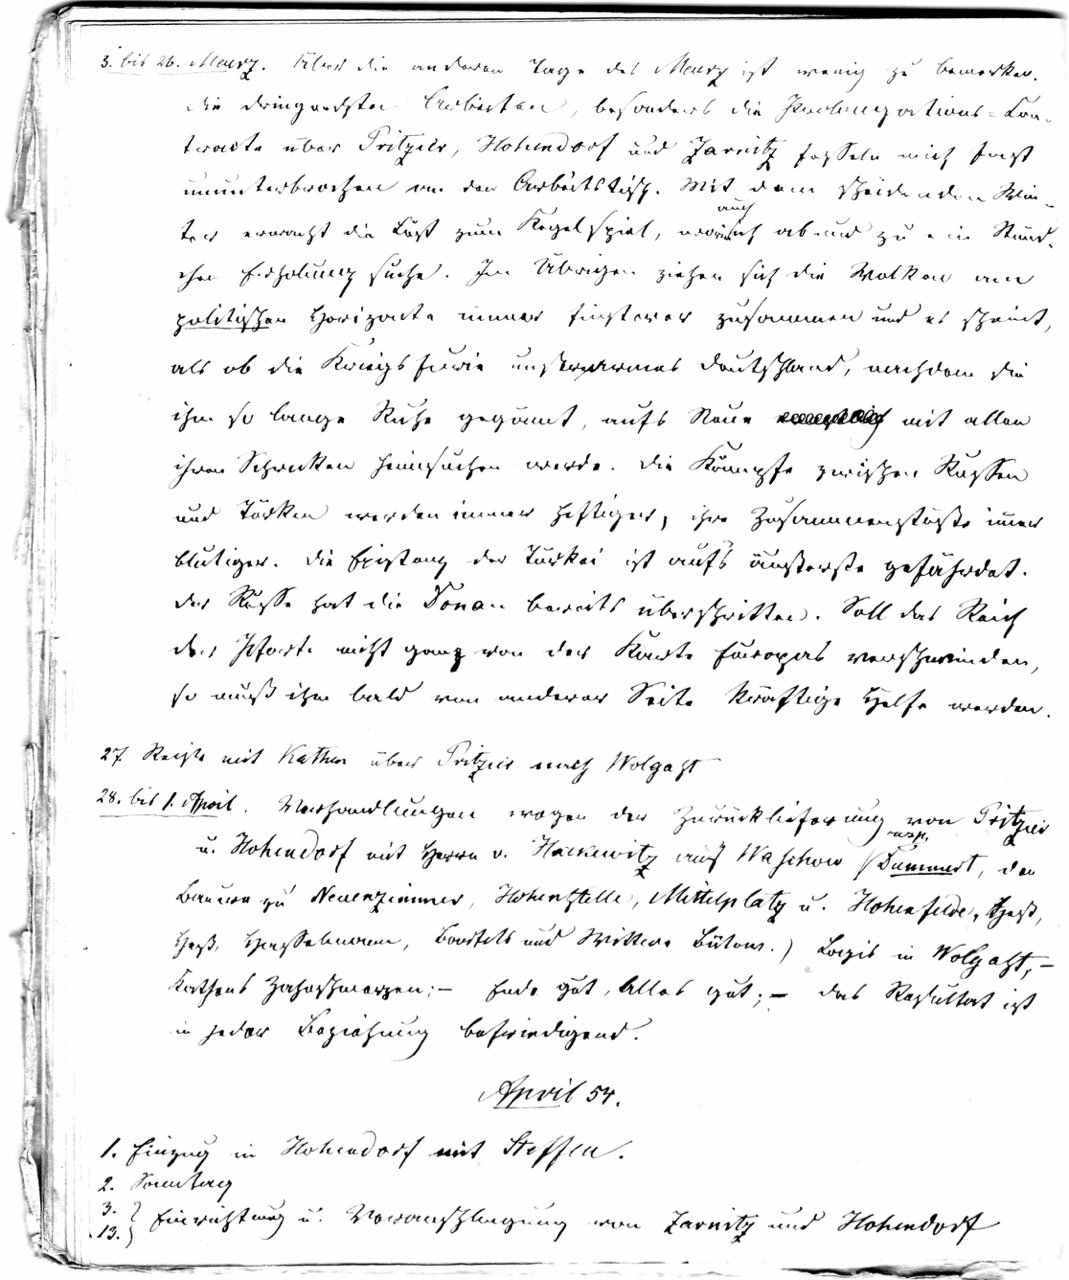 3. bis 26. Maerz. Über die anderen Tage des Maerz ist wenig zu bemerken.
Die dringendsten Arbeiten, besonders die Prolongations=Con-
tracte über Pritzier, Hohendorf und Zarnitz fesseln mich fast
ununterbrochen an den Arbeitstisch. Mit dem scheidenden Win-
ter erwacht die Lust zum Kegelspiel, worin auch ich ab und zu ein Stünd-
chen Erholung suche. Im Übrigen ziehen sich die Wolken am
politischen Horizonte immer finsterer zusammen und es scheint,
als ob die Kriegsfurie unser armes Deutschland, nachdem sie
ihm so lange Ruhe gegönnt, aufs Neue mit allen
ihren Schrecken heimsuchen werde. Die Kämpfe zwischen Russen
und Türken werden immer heftiger, ihre Zusammenstöße immer
blutiger. Die Existenz der Türkei ist auf's äußerste gefährdet.
Der Russe hat die Donau bereits überschritten. Soll das Reich
der Pforte nicht ganz von der Karte Europas verschwinden,
so muß ihm bald von anderer Seite kräftige Hülfe werden.
27. Reiste mit Kathen über Pritzier nach Wolgast
28. bis 1. April. Verhandlungen wegen der Zurücklieferung von Pritzier
u. Hohendorf mit Herrn v. Hackewitz auf Waschow (Dummert, den
Bauern zu Neuenzimmer, Hohenstelle, Mittelplatz u. Hohenfelde,
Hasselmann, Bartels und Wittwe Bülow.) Logis in Wolgast, –
Kathens Zahnschmerzen; – Ende gut, Alles gut; – das Resultat ist
in jeder Beziehung befriedigend.
April 54.
1. Einzug in Hohendorf mit Steffen.
2. Sonntag
3.
13. } Einrichtung u. Veranschlagung von Zarnitz und Hohendorf